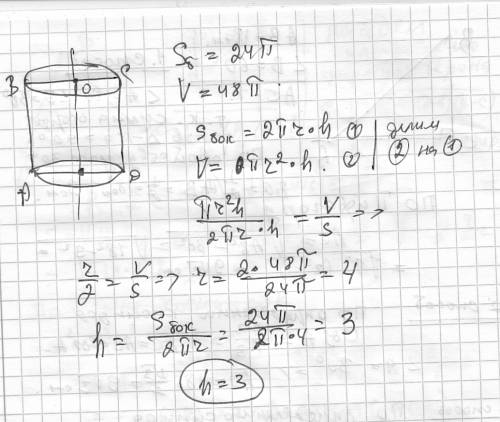 B C
O
A D
Sб = 24π
V = 48π
Sбок = 2πr·h ① | делим
V = πr²·h. ② | ② на ①
πr²h / 2πr·h = V/S =>
r/2 = V/S => r = 2·48π / 24π = 4
h = Sбок / 2πr = 24π / 2π·4 = 3
h = 3